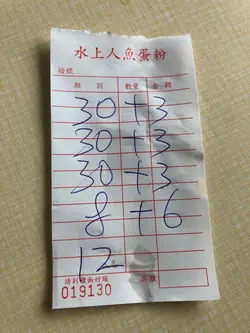 水上人魚蛋粉
枱號
類別 數量 金額
30+3
30+3
30+3
8+6
12
請到櫃面付賬 共銀
019130